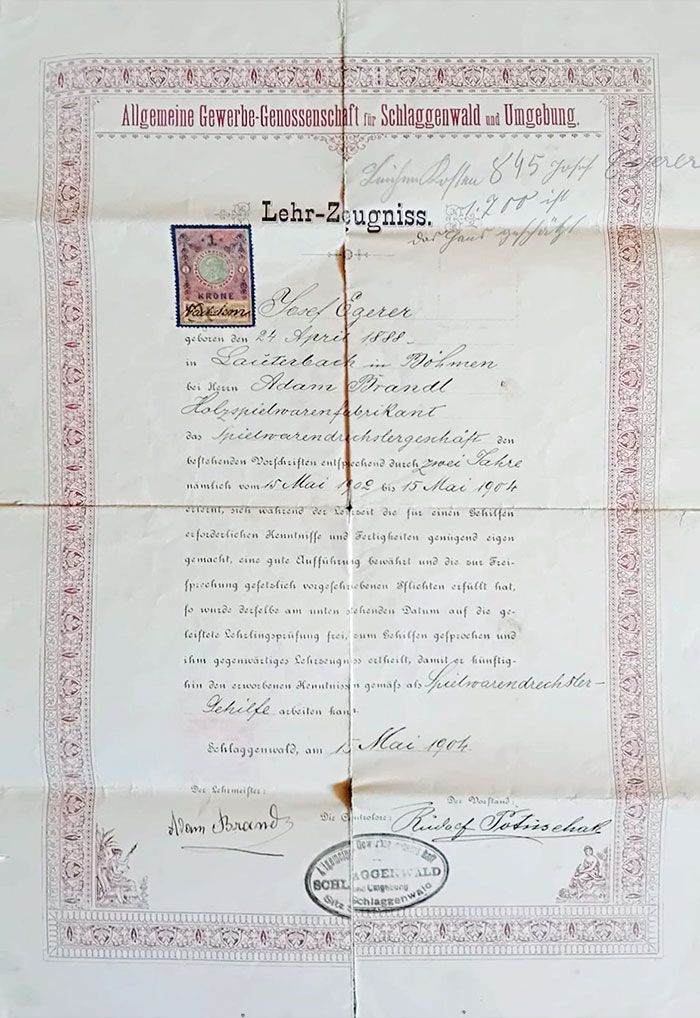 Allgemeine Gewerbe-Genossenschaft für Schlaggenwald und Umgebung.
Leichen Kosten 845 Josef Egerer
700 ist
Lehr-Zeugniss.
das Haus geschätzt
1.
KRONE
Josef Egerer
geboren den 24 April 1888
in Lauterbach in Böhmen
bei Herrn Adam Brandl
Holzspielwarenfabrikant
das Spielwarendrechslergeschäft den
bestehenden Vorschriften entsprechend durch zwei Jahre
nämlich vom 15 Mai 1902 bis 15 Mai 1904
erlernt, sich während der Lehrzeit die für einen Gehilfen
erforderlichen Kenntnisse und Fertigkeiten genügend eigen
gemacht, eine gute Aufführung bewährt und die zur Frei-
sprechung gesetzlich vorgeschriebenen Pflichten erfüllt hat,
so wurde derselbe am unten stehenden Datum auf die ge-
leistete Lehrlingsprüfung frei, zum Gehilfen gesprochen und
ihm gegenwärtiges Lehrzeugniss ertheilt, damit er künftig-
hin den erworbenen Kenntnissen gemäss als Spielwarendrechsler-
Gehilfe arbeiten kann.
Schlaggenwald, am 15 Mai 1904.
Der Lehrmeister:
Der Vorstand:
Die Controlore:
Adam Brandl
Rudolf
Allgemeine Gewerbegenossenschaft
SCHLAGGENWALD
und Umgebung
Sitz Schlaggenwald